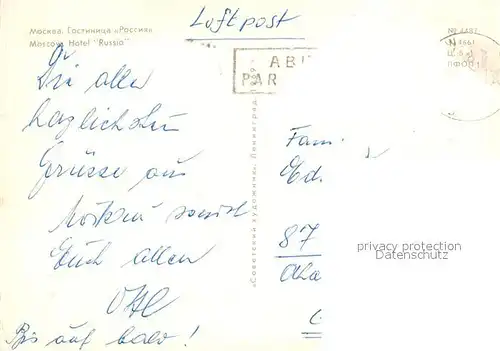 Москва. Гостиница «Россия»
Moscow. Hotel "Russia"
Luftpost
PAR
Die aller
herzlichsten
Grüsse aus
Moskau sendet
Euch allen
Bis auf bald!
«Советский художник». Ленинград
Fam.
Ed
87
privacy protection
Datenschutz